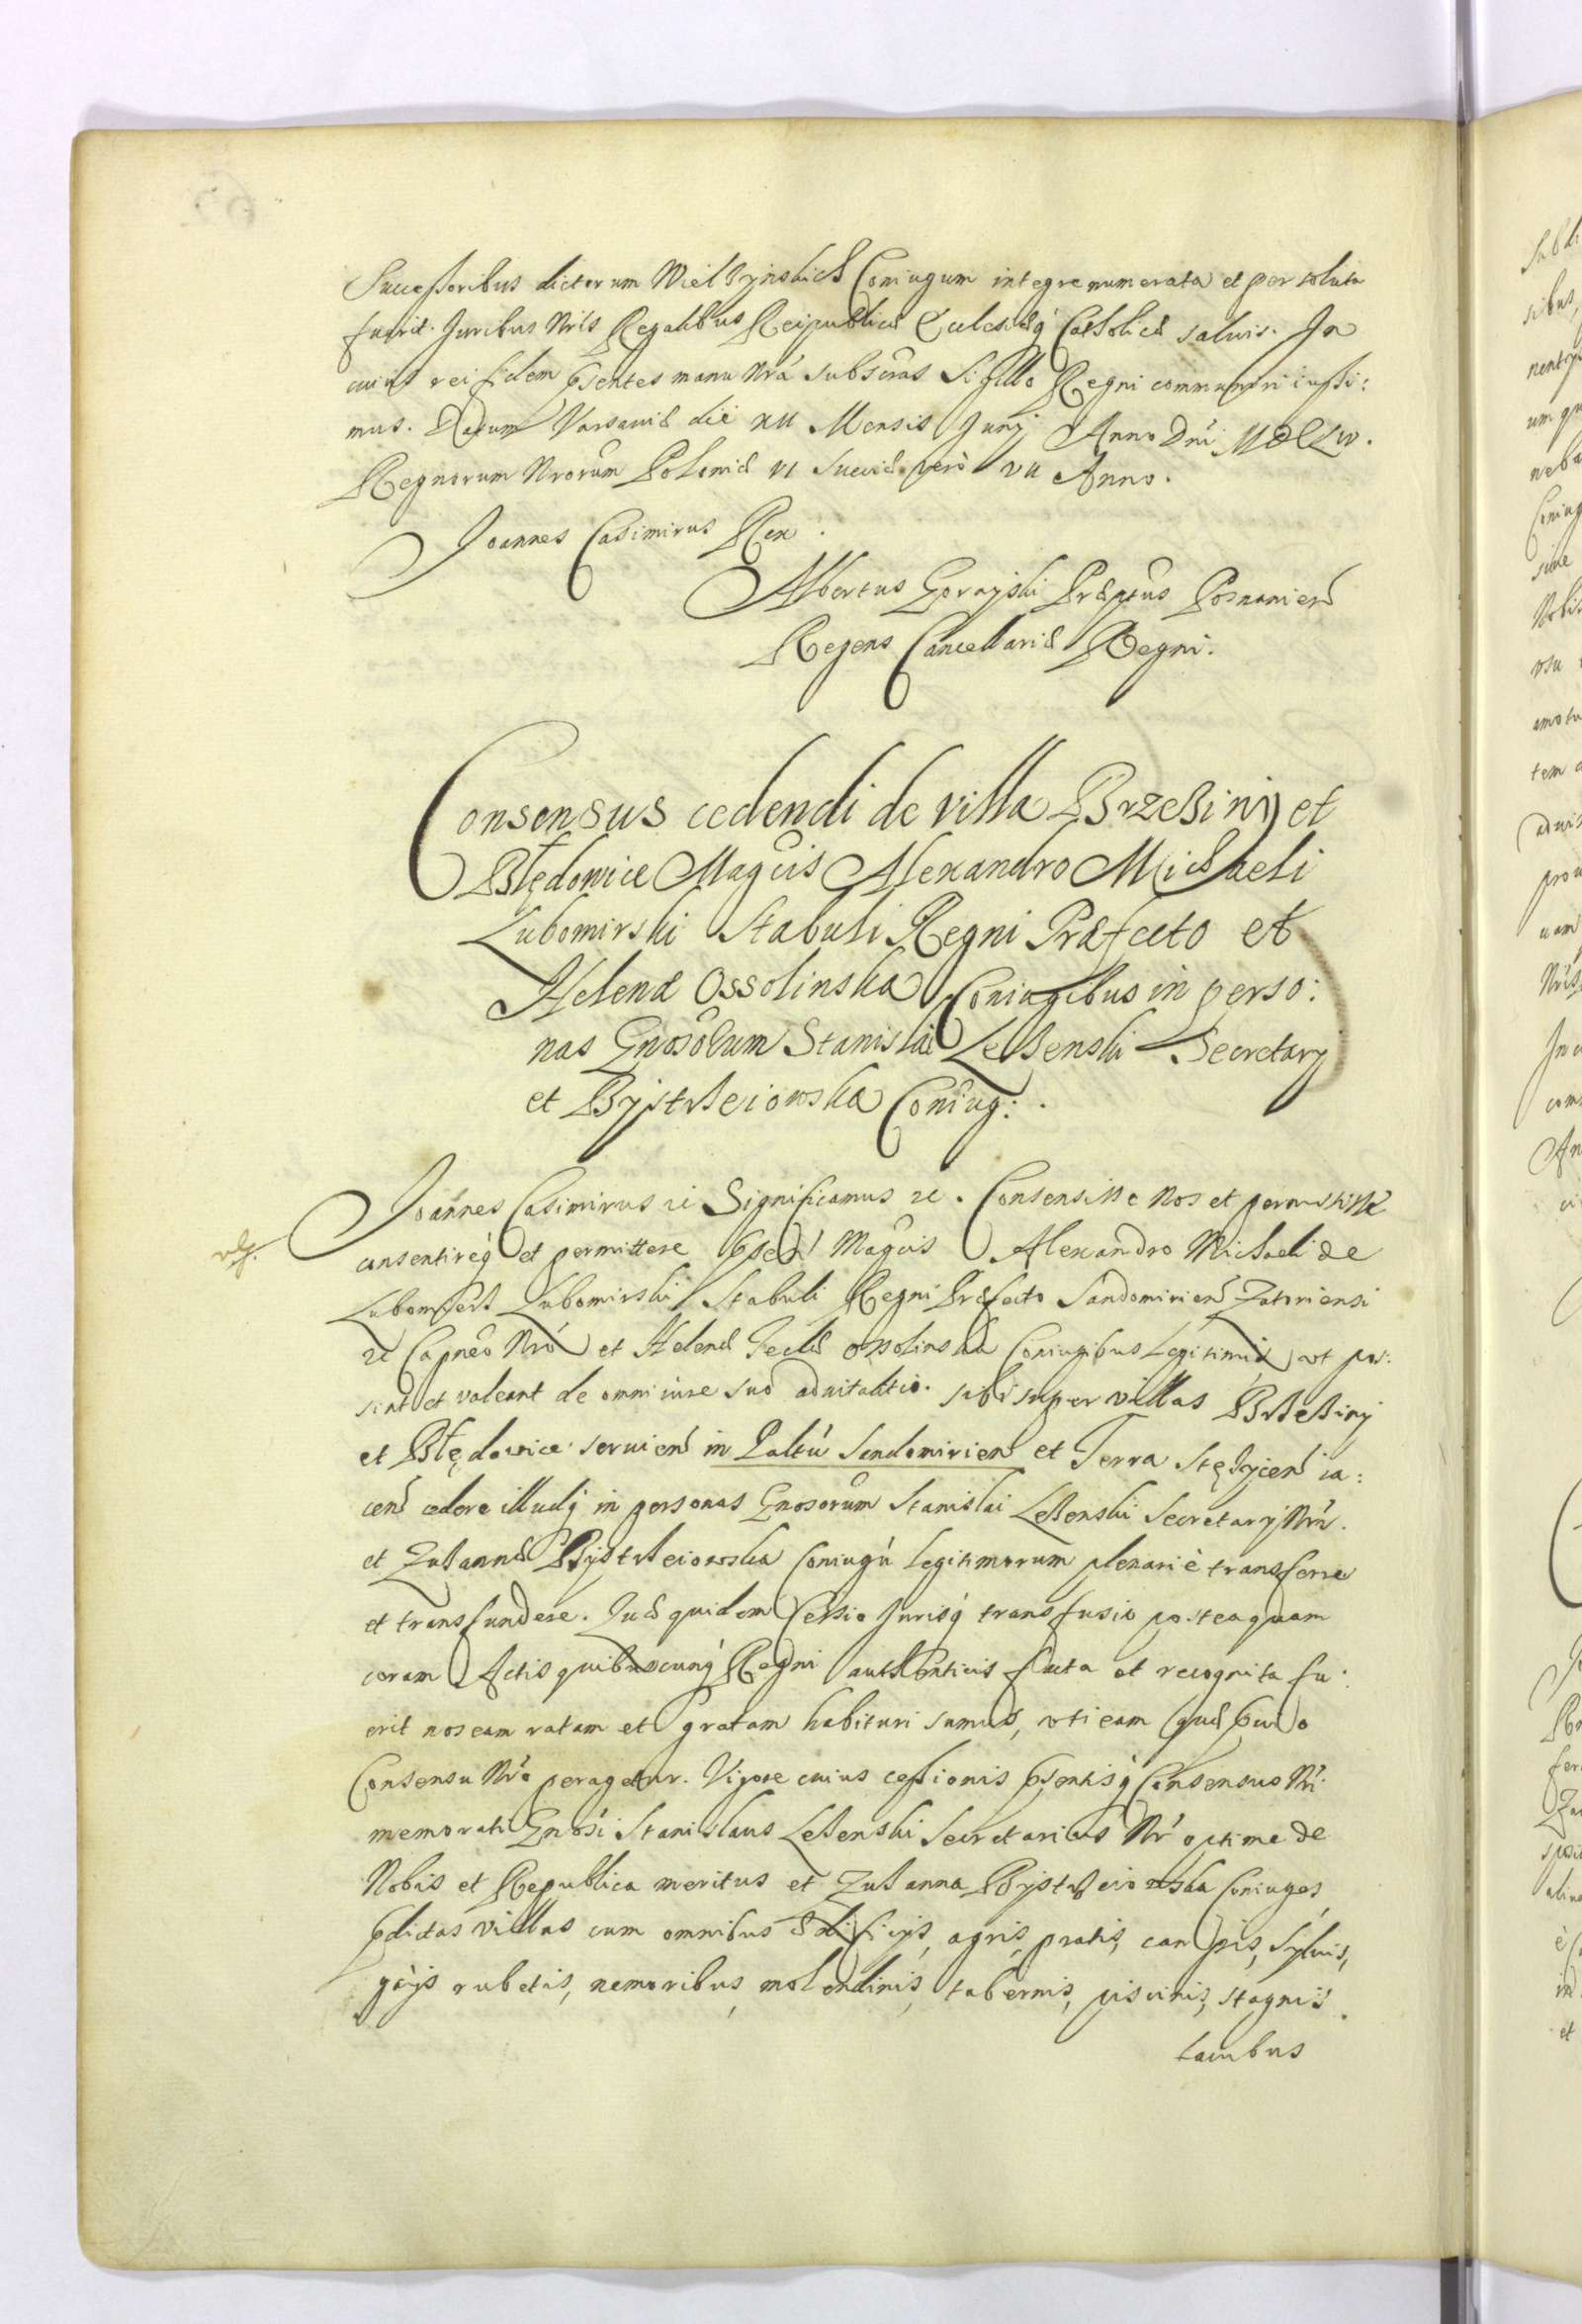 Successoribus dictorum Wielżyńskich Coniugum integre numerata et persoluta
fuerit. Juribus Nris Regalibus Reipublicæ Ecclesiæq́ Catholicæ salvis. In
cuius rei fidem p̃sentes manu Nrá subscras Sigillo Regni communiri iussi:
mus. Datum Varsaviæ die XII Mensis Junij Anno Dni MDCLIV.
Regnorum Nrorum Poloniæ VI Sueciæ verò VII Anno.
Joannes Casimirus Rex.
Albertus Gorayski Præptus Posnanien
Regens Cancellariæ Regni.
Consensus cedendi de villa Brzeziny et
Błędowice Magcis Alexandro Michaeli
Lubomirski Stabuli Regni Præfecto et
Helenæ Ossolinska Coniugibus in perso:
nas Gnosorum Stanislai Leżenski Secretarij
et Bystrzeiowska Coniug:.
Joannes Casimirus etc Significamus etc. Consensisse Nos et permisisse
consentireq́ et permittere p̃sen Magcis Alexandro Michaeli de
Lubomierz Lubomirski Stabuli Regni Præfecto Sandomirien Zatoriensi
etc Capneo Nró et Helenæ Teclæ Ossolinska Coniugibus Legitimis ut pos:
sint et valeant de omni iure suo advitalitio sibi super villas Brzeziny
et Błędowice servien in Paltú Sandomirien et Terra Stężycien ia:
cen cedere illudq́ in personas Gnosorum Stanislai Leżenski Secretarij Nri
et Zuzannæ Bystrzeiowska Coniugú legitimorum plenariè transferre
et transfundere. Quæ quidem Cessio Jurisq́ transfusio posteaquam
coram Actis quibuscunq́ Regni authenticis facta et recognita fu:
erit nos eam ratam et gratam habituri sumus, uti eam quæ p̃vio
Consensu Nró peragetur. Vigore cuius cessionis p̃sentisq́ Consensus Nri
memorati Gnosi Stanislaus Leżenski Secretarius Nr optime de
Nobis et Republica meritus et Zuzanna Bystrzeiowska Coniuges
p̃dictas villas cum omnibus ædificijs, agris, pratis, campis, sylvis,
gaijs rubetis, nemoribus, molendinis, tabernis, piscinis, stagnis
lacubus